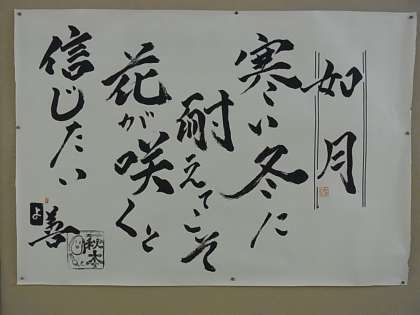 如月
寒い冬に
耐えてこそ
花が咲くと
信じたい
よ善
秋本